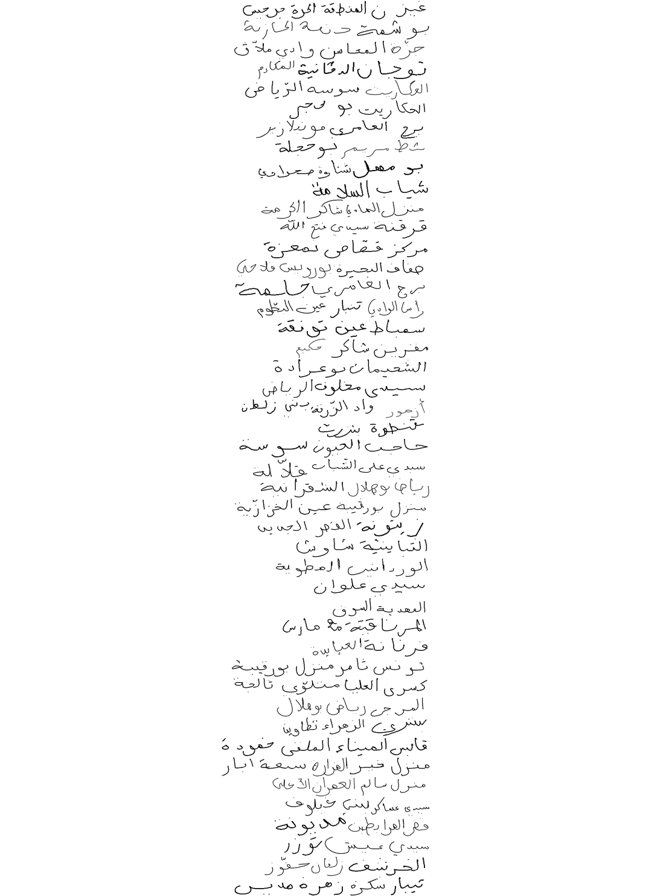 المنطقة الحرة جرجيس
بو شمة حنمة الحازية
حرّة وادي ملاّق
توجان الدقانية المكارم
العكاريت سوسة الرّياض
الحكاريت بو حجر
برج العامري مونبلازير
شط مريم بوحجلة
بو مهل شناوة صحراوي
شباب السلامة
منزل الهادي شاكر الكرمة
قرقنة سيدي فتح اللّه
مركز قصّاص بمعزة
ضفاف البحيرة بورديس ملاحي
برج العامري جلمة
راس الوادي تيبار عين
سمباط عين تونقة
مغرين شاكر حكيم
الشعيمات بوعرادة
سيدي مخلوف الرياض
واد الزرقة بني زلطن
غنطوة بنزرت
حاجب العيون سوسة
سيدي علي الشباب قلاّلة
رياض بوهلال الشقرانية
منزل بورقيبة عين الخرازيّة
زيتونة القصر الجديد
التباينيّة شاوش
الوردانين المطوية
سيدي علوان
السوق
المرناقية 20 مارس
فرنانة العبابسة
تونس ثامر منزل بورقيبة
كسرى العليا منلوّي تالجة
المرجى رياض بوهلال
بنزرت الزهراء تطاوين
قابس الميناء الملغى حفوزة
منزل حر الفوارة سبعة ابار
منزل سالم العمران الأعلى
سيدي عساكر بني خلوف
قصر المرابطين مديونة
سيدي عيش توزر
الخرشف رمان حفّوز
تيبار سكرة زهرة مديس